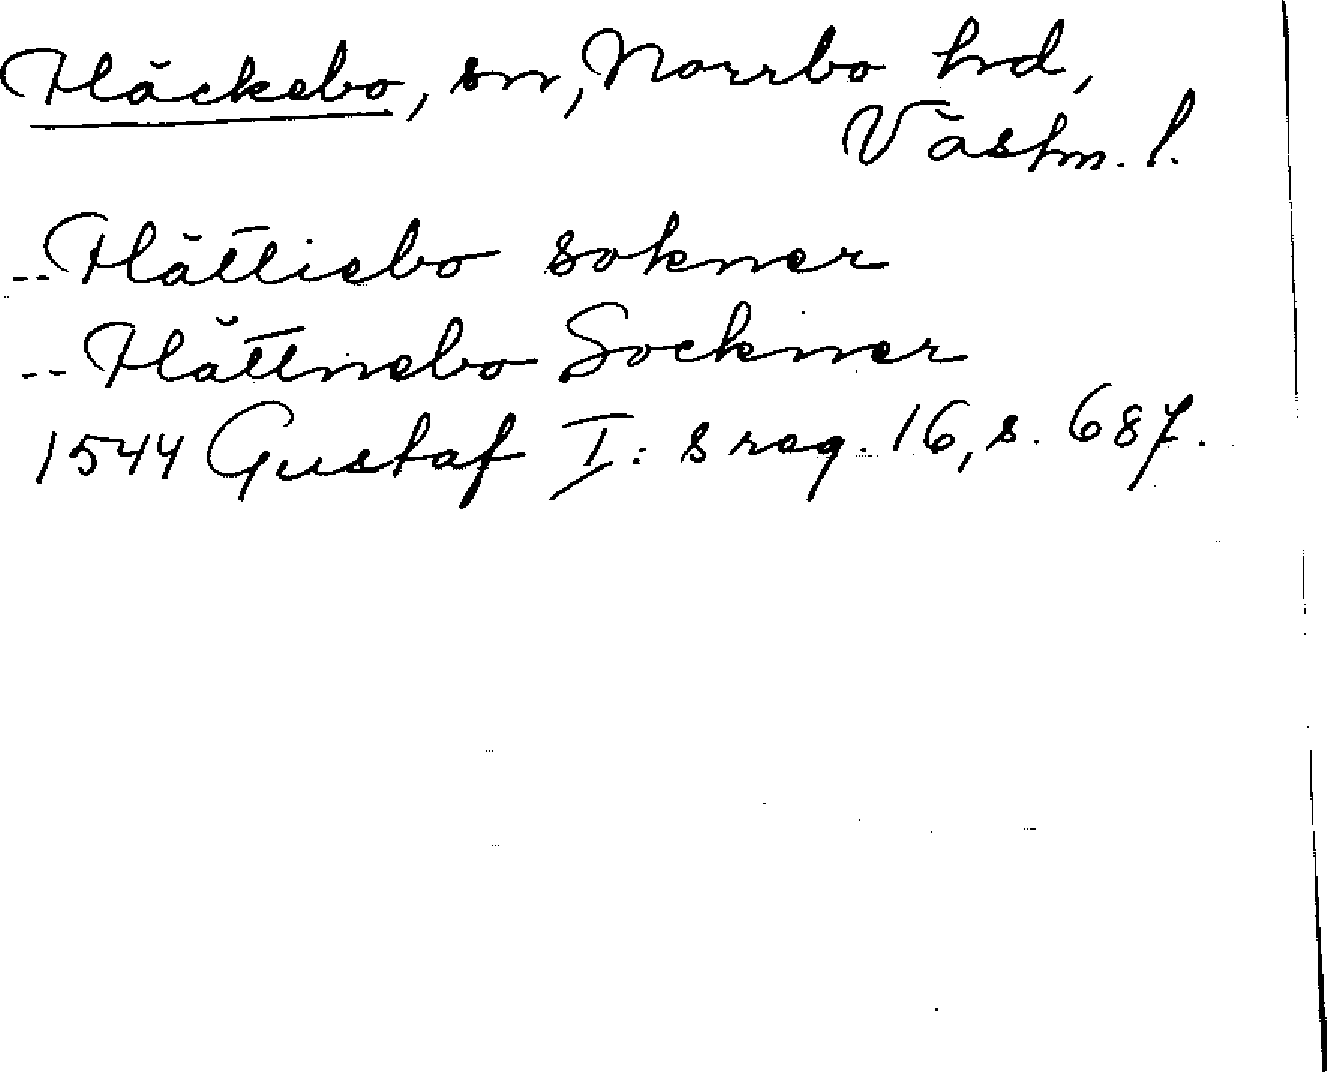 Häckebo, sn, Norrbo hd,
Västm. l.
-- Hättiebo sokner
-- Hättnebo Sockner
1544 Gustaf I: s reg. 16, s. 687.